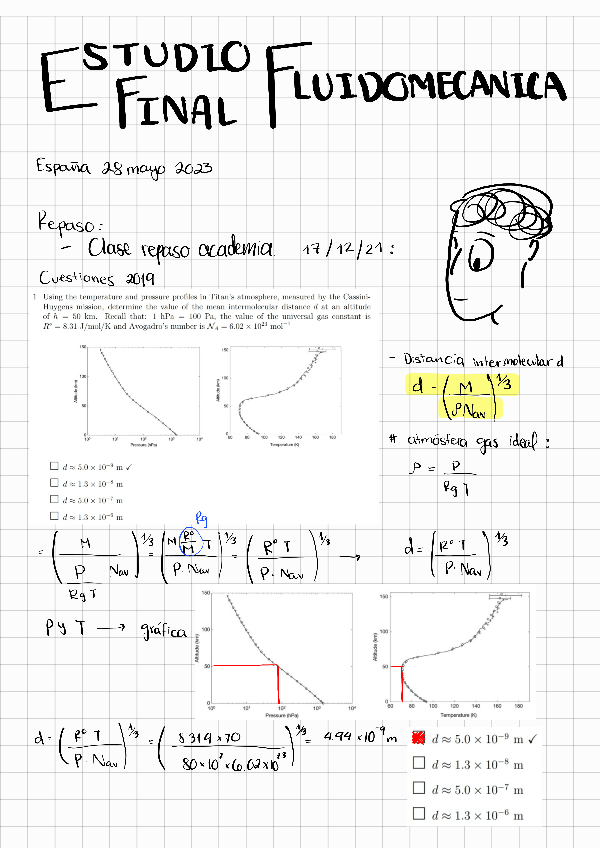 ESTUDIO
FINAL FLUIDOMECANICA
España 28 mayo 2023
Repaso:
- Clase repaso academia 17/12/21:
Cuestiones 2019
1 Using the temperature and pressure profiles in Titan's atmosphere, measured by the Cassini-
Huygens mission, determine the value of the mean intermolecular distance d at an altitude
of h = 50 km. Recall that: 1 hPa = 100 Pa, the value of the universal gas constant is
R° = 8.31 J/mol/K and Avogadro's number is N_A = 6.02 × 10²³ mol⁻¹
Altitude (km)
150
100
50
0
10⁰ 10¹ 10² 10³ 10⁴
Pressure (hPa)
Altitude (km)
150
100
50
0
60 80 100 120 140 160 180
Temperature (K)
☐ d ≈ 5.0 × 10⁻⁹ m ✓
☐ d ≈ 1.3 × 10⁻⁸ m
☐ d ≈ 5.0 × 10⁻⁷ m
☐ d ≈ 1.3 × 10⁻⁶ m
- Distancia intermolecular d
d = (M / ρ Nav)^1/3
# atmósfera gas ideal:
ρ = P / Rg T
Rg
= (M / (P / Rg T) Nav)^1/3 = (M R°/M T / P · Nav)^1/3 = (R° T / P · Nav)^1/3 → d = (R° T / P · Nav)^1/3
P y T → gráfica
Altitude (km)
150
100
50
0
10⁰ 10¹ 10² 10³ 10⁴
Pressure (hPa)
Altitude (km)
150
100
50
0
60 80 100 120 140 160 180
Temperature (K)
d = (R° T / P · Nav)^1/3 = (8.314 × 70 / 80 × 10² × 6.02 × 10²³)^1/3 = 4.94 × 10⁻⁹ m
d ≈ 5.0 × 10⁻⁹ m ✓
☐ d ≈ 1.3 × 10⁻⁸ m
☐ d ≈ 5.0 × 10⁻⁷ m
☐ d ≈ 1.3 × 10⁻⁶ m